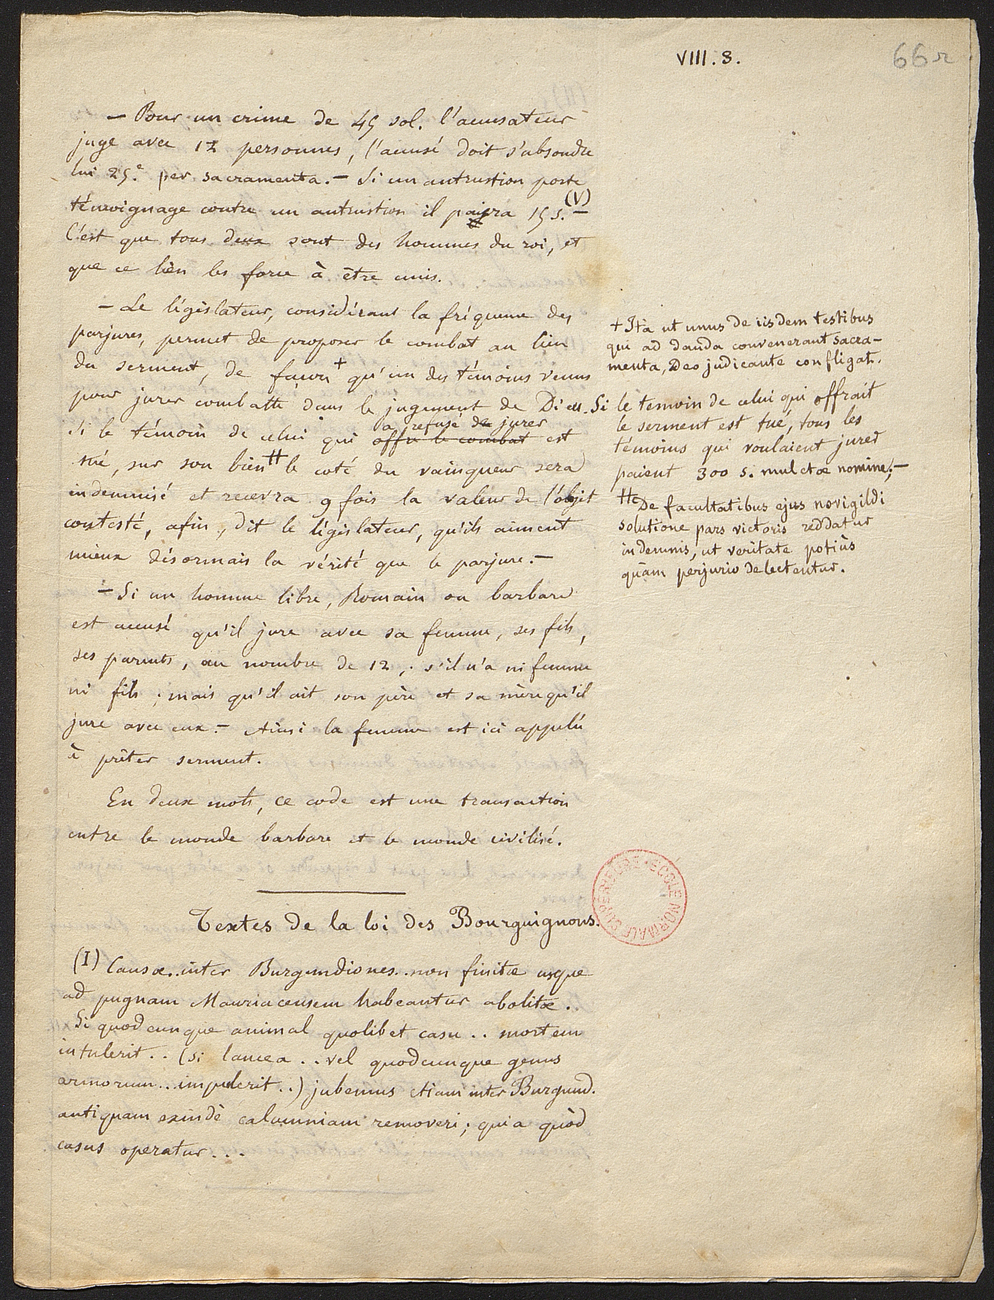 VIII. 8.
66r
— Pour un crime de 45 sol. l'accusateur
juge avec 12 personnes, l'accusé doit s'absoudre
lui 25.e per sacramenta. — Si un antrustion porte
témoignage contre un antrustion il paiera 15 s. (V) —
C'est que tous deux sont des hommes du roi, et
que ce lien les force à être unis.
— Le législateur, considérant la fréquence des
parjures, permet de proposer le combat au lieu
du serment, de façon + qu'un des témoins venus
pour jurer combatte dans le jugement de Dieu. Si
si le témoin de celui qui offre le combat a refusé de jurer est
tué, sur son bien ++ le coté du vainqueur sera
indemnisé et recevra 9 fois la valeur de l'objet
contesté, afin, dit le législateur, qu'ils aiment
mieux désormais la vérité que le parjure. —
— Si un homme libre, Romain ou barbare
est accusé qu'il jure avec sa femme, ses fils,
ses parents, au nombre de 12 ; s'il n'a ni femme
ni fils ; mais qu'il ait son père et sa mère qu'il
jure avec eux. — Ainsi la femme est ici appelée
à prêter serment.
En deux mots, ce code est une transaction
entre le monde barbare et le monde civilisé.
+ Ita ut unus de iisdem testibus
qui ad danda convenerant sacra-
menta, Deo judicante confligat.
le temoin de celui qui offrait
le serment est tué, tous les
témoins qui voulaient jurer
paient 300 s. mulctæ nomine; —
++ De facultatibus ejus novigildi
solutione pars victoris reddatur
indemnis, ut veritate potiùs
quàm perjurio delectentur.
Textes de la loi des Bourguignons.
(I) Causæ.. inter Burgundiones.. non finitæ usque
ad pugnam Mauriacensem habeantur abolitæ..
Si quodcunque animal quolibet casu .. mortem
intulerit .. (si lancea .. vel quodcunque genus
armorum... impulerit..) jubemus etiam inter Burgund.
antiquam exindè calumniam removeri ; quia quòd
casus operatur...
ÉCOLE NORMALE SUPÉRIEURE